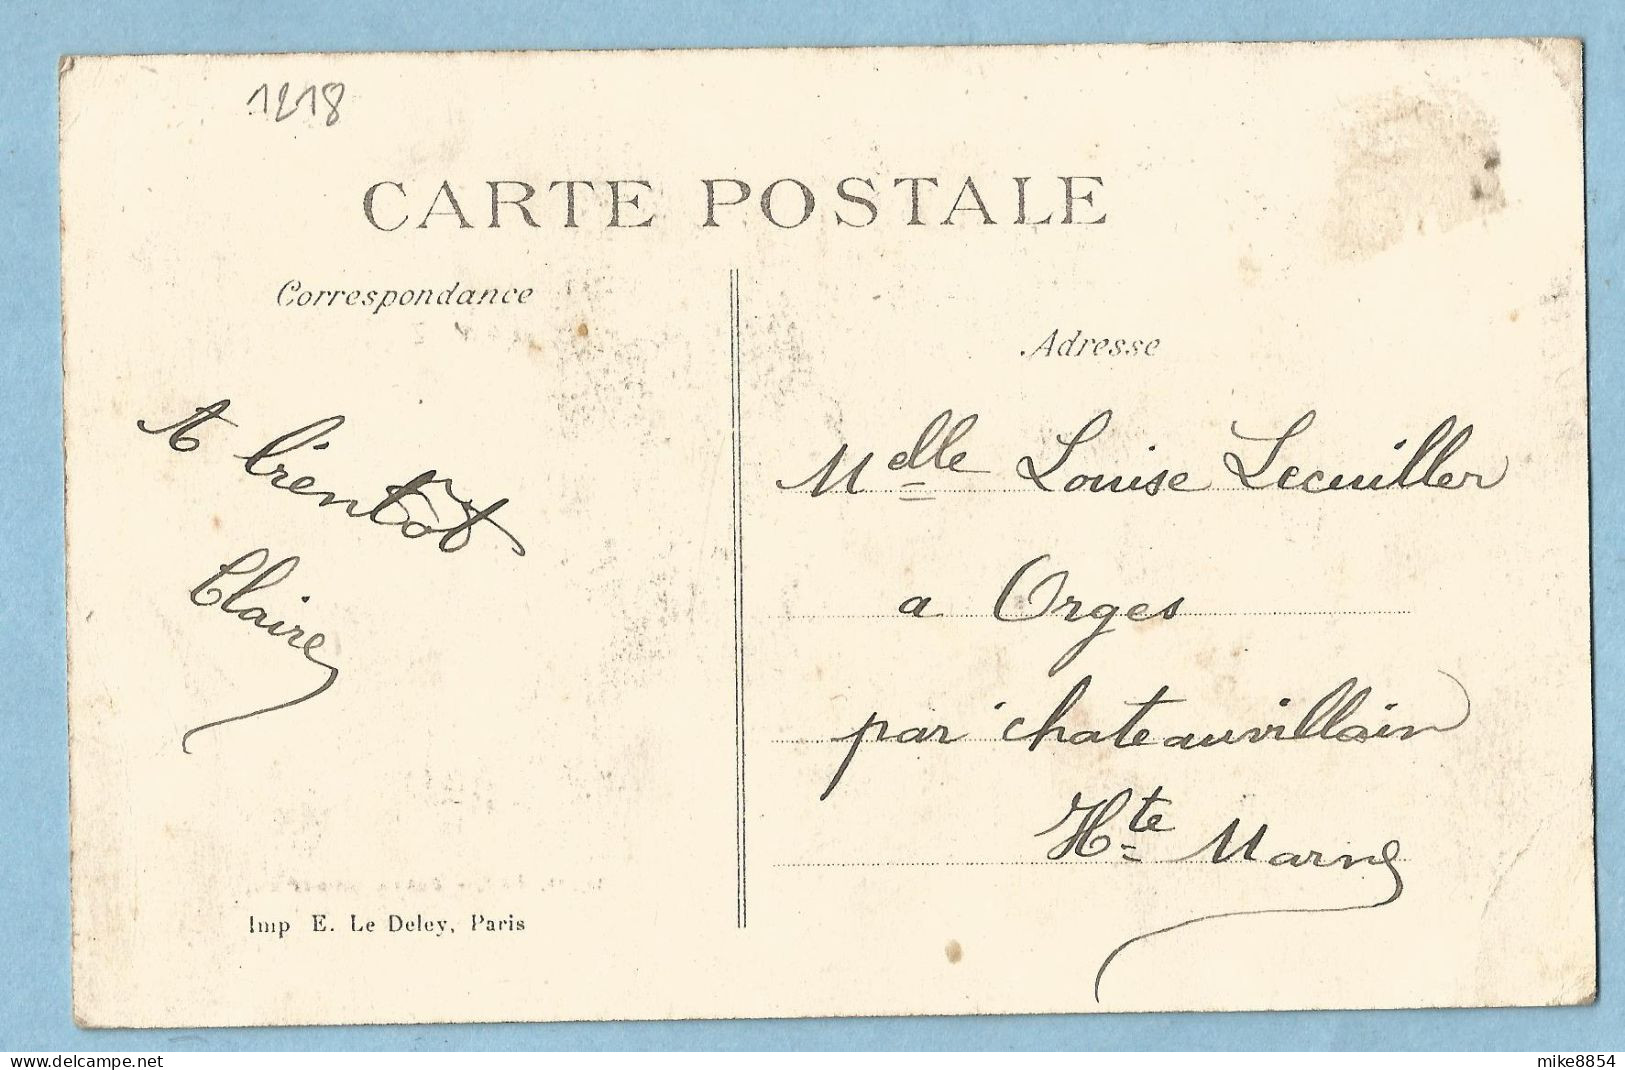 1218
CARTE POSTALE
Correspondance
Adresse
A bientôt
Claire
Melle Louise Lecuiller
a Orges
par chateauvillain
Hte Marne
Imp E. Le Deley, Paris
www.delcampe.net
mike8854